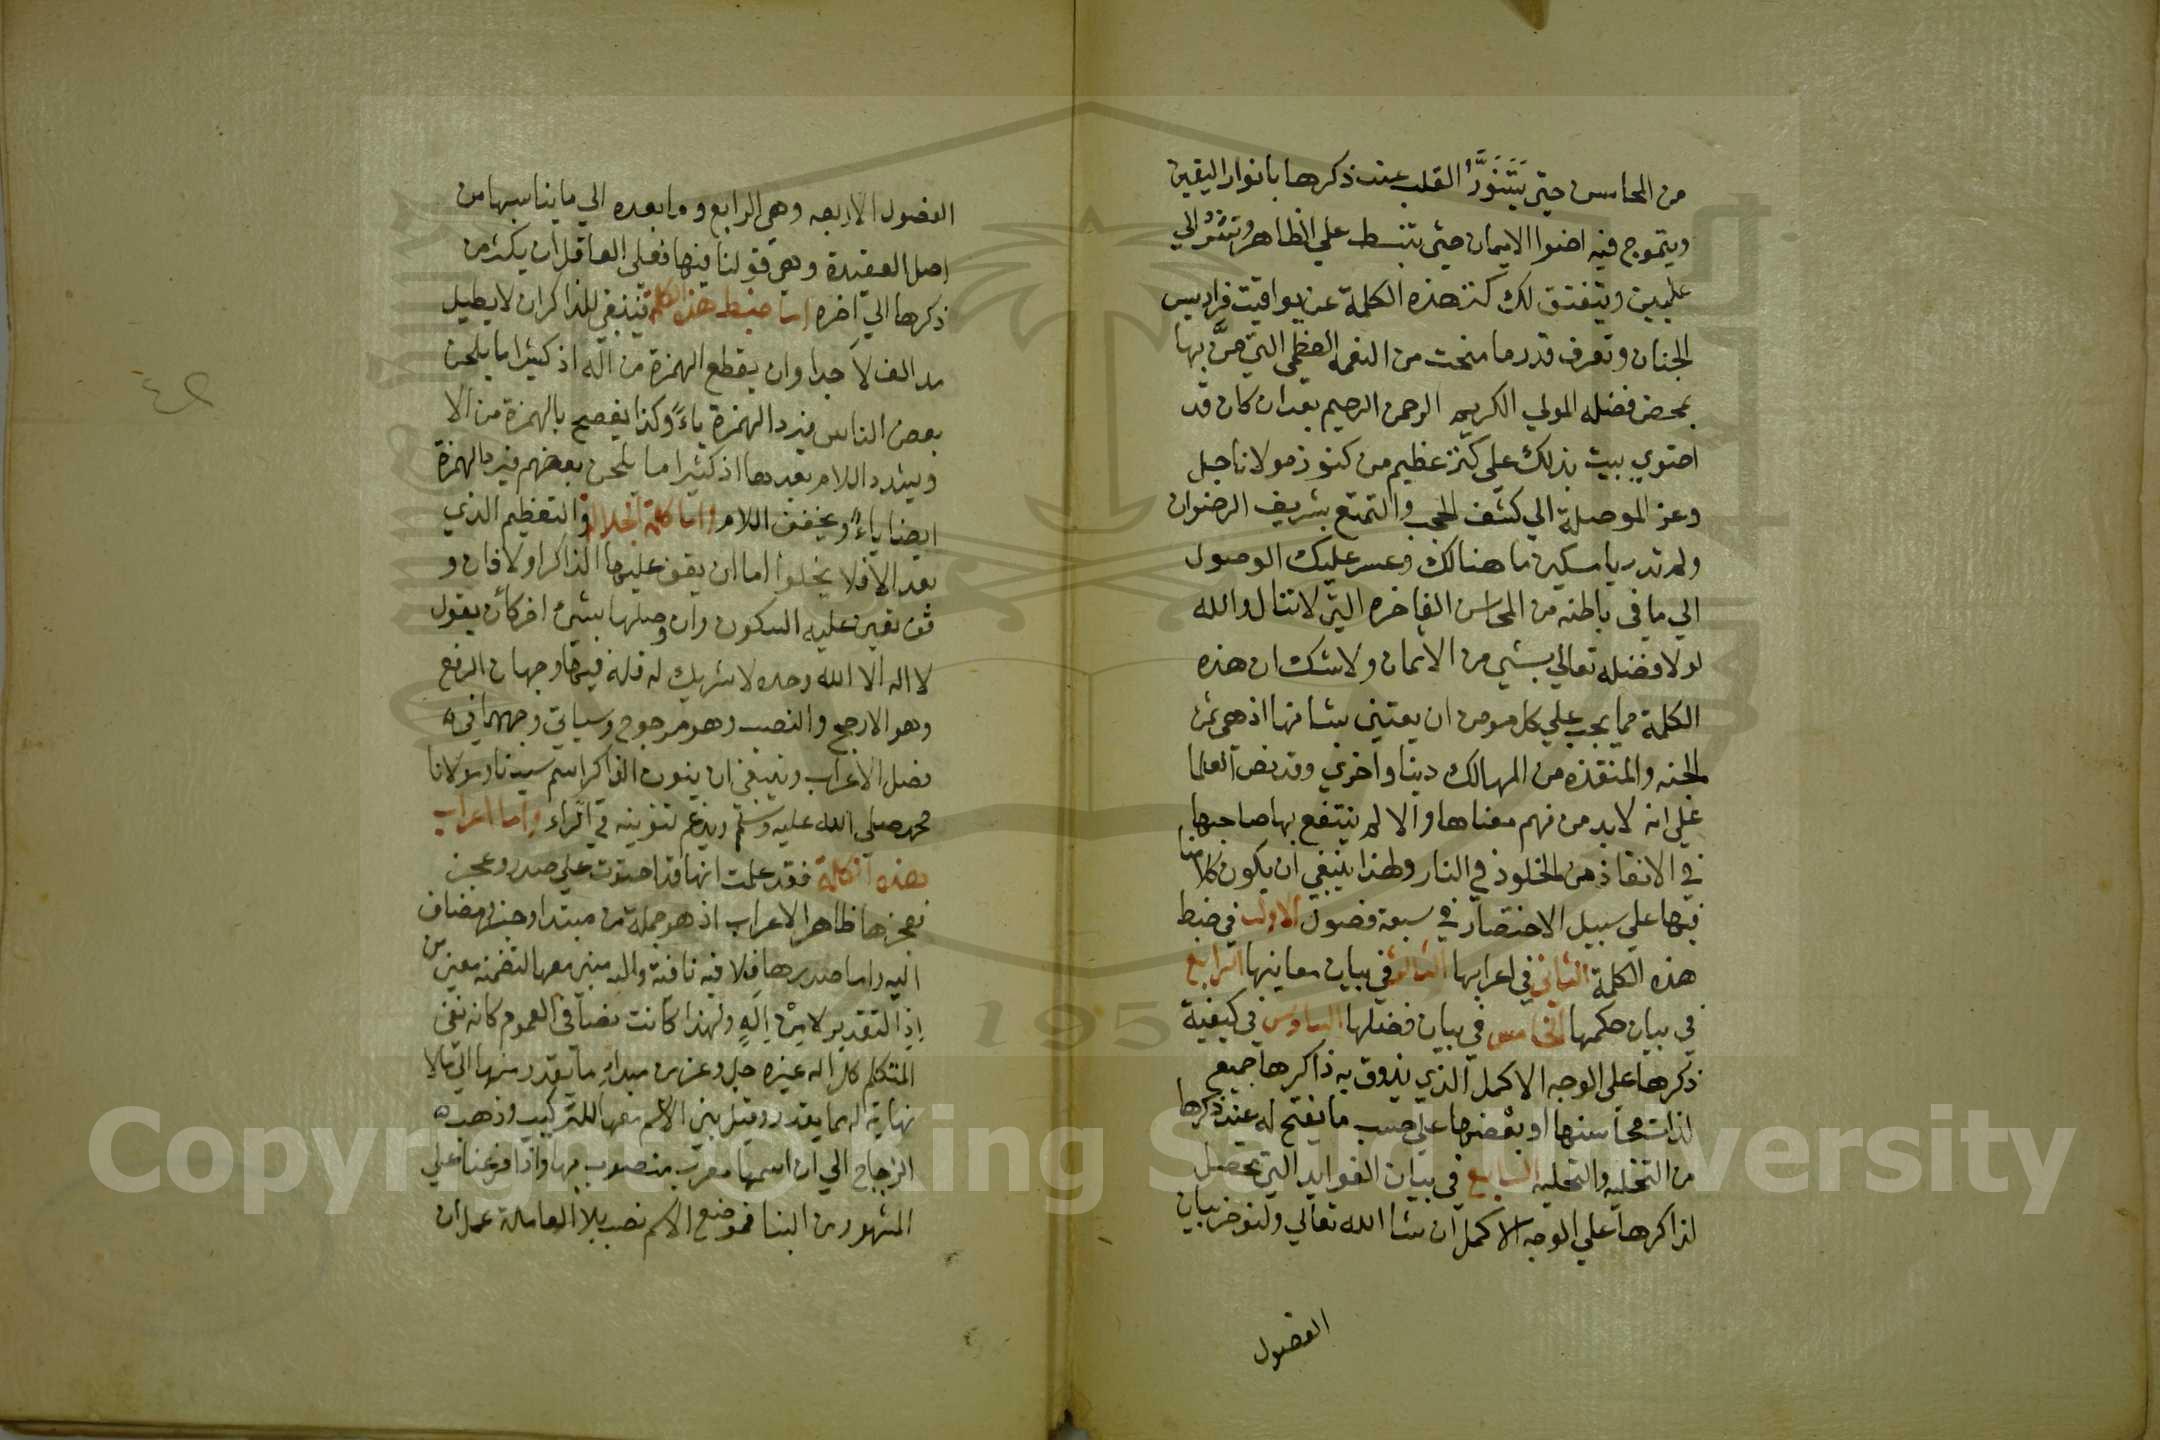 من المحاسن حتى يَتَنَوَّرُ القلب عند ذكرها بانوار اليقين
ويتموج فيه اضوا الايمان حتى تنبسط علي الظاهر وتنثُرُ الي
عليين وينفتق لك كنز هذه الكلمة عن يواقيت فراديس
الجنان وتعرف قدر ما منحت من النعمه العظمى التي منَّ بها
بمحض فضله المولي الكريم الرحمن الرحيم بعد ان كان قد
احتوي بيت بذلك على كنز عظيم من كنوز مولانا جل
وعز الموصلة الي كشف الحجب والتمتع بشريف الرضوان
ولم تدر يا مسكين ما هنالك وعسر عليك الوصول
الي ما في باطنه من المحاسن الفاخره التي لا تنال والله
لولا فضله تعالي بشي من الاثمان ولا شك ان هذه
الكلمة مما يجب علي كل مومن ان يعتني بشانها اذ هي ثمن
الجنه والمنقذه من المهالك دينا واخري وقد نص العلما
على انه لا بد من فهم معناها والا لم ينتفع بها صاحبها
في الانقاذ من الخلود في النار ولهذا ينبغي ان يكون كلامنا
فيها على سبيل الاختصار في سبعة فصول الاول في ضبط
هذه الكلمة الثاني في اعرابها الثالث في بيان معانيها الرابع
في بيان حكمها الخامس في بيان فضلها السادس في كيفية
ذكرها على الوجه الاكمل الذي يذوق به ذاكرها جميع
لذات محاسنها او بعضها على حسب ما يفتح له عند ذكرها
من التخليه والتحليه السابع في بيان الفوايد التي تحصل
لذاكرها علي الوجه الاكمل ان شا الله تعالي ولنوخر بيان
الفصول
الفصول الاربعه وهي الرابع وما بعده الي ما يناسبها من
اصل العقيدة وهي قولنا فيها فعلى العاقل ان يكثر من
ذكرها الي اخره اما ضبط هذه الكلمة فينبغي للذاكر ان لا يطيل
مد الف لا جدا وان يقطع الهمزة من اله اذ كثيرا ما يلحن
بعض الناس فيرد الهمزة ياءً وكذا يفصح بالهمزة من الا
ويشدد اللام بعدها اذ كثيرا ما يلحن بعضهم فيرد الهمزة
ايضا ياءً ويخفف اللام واما كلمة الجلالة والتعظيم الذي
بعد الا فلا يخلوا اما ان يقف عليها الذاكر اولا فان و
قف تعين عليه السكون وان وصلها بشيء اخر كأن يقول
لا اله الا الله وحده لا شريك له فله فيها وجهان الرفع
وهو الارجح والنصب وهو مرجوح وسياتي وجههما في
فصل الاعراب وينبغي ان ينون الذاكر اسم سيدنا ومولانا
محمد صلي الله عليه وسلم ويدغم تنوينه في الراء واما اعراب
هذه الكلمة فقد علمت انها قد احتوت على صدر وعجز
فعجزها ظاهر الاعراب اذ هو جملة من مبتدا وخبر ومضاف
اليه واما صدرها فلا فيه نافية واله مبني معها لتضمنه معنى من
اِذ التقدير لا مِنْ اِلهٍ ولهذا كانت نصا في العموم كانه نفى
المتكلم كل اله غيره جل وعز من مبدإ ما يقدر منها الي ما لا
نهاية له مما يقدر وقيل بني الاسم معها للتركيب وذهب
الزجاج الي ان اسمها معرب منصوب بها واذا فرعنا علي
المشهور من البنا فموضع الاسم نصب بلا العاملة عمل ان
Copyright © King Saud University
195